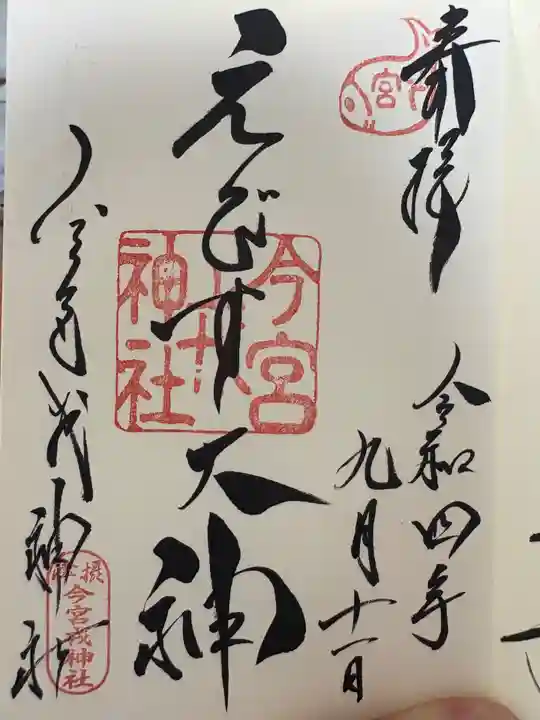 奉拝
令和四年
九月十一日
えびす大神
今宮戎神社
今宮
戎
神社
摂社
今宮戎神社
宮